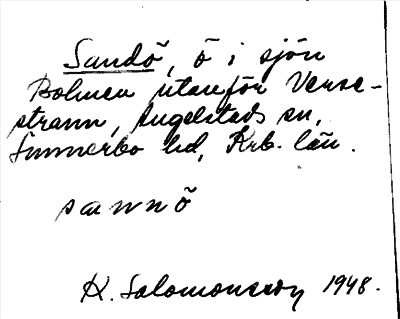 Sandö, ö i sjön
Bolmen utanför Verse-
strann, Angelstads sn,
Sunnerbo hd, Krb. län.
sannö
K. Salomonsson 1948.